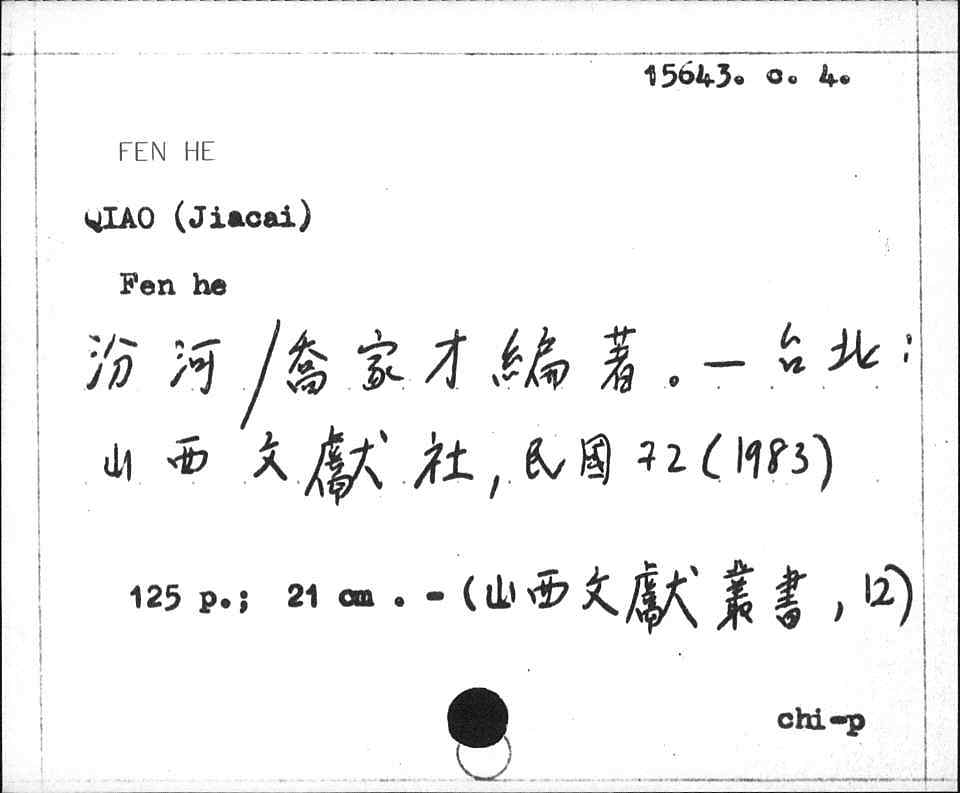 15643. c. 4.
FEN HE
QIAO (Jiacai)
Fen he
汾河/喬家才編著。—台北:
山西文獻社,民國72(1983)
125 p.; 21 cm. - (山西文獻叢書,12)
chi-p